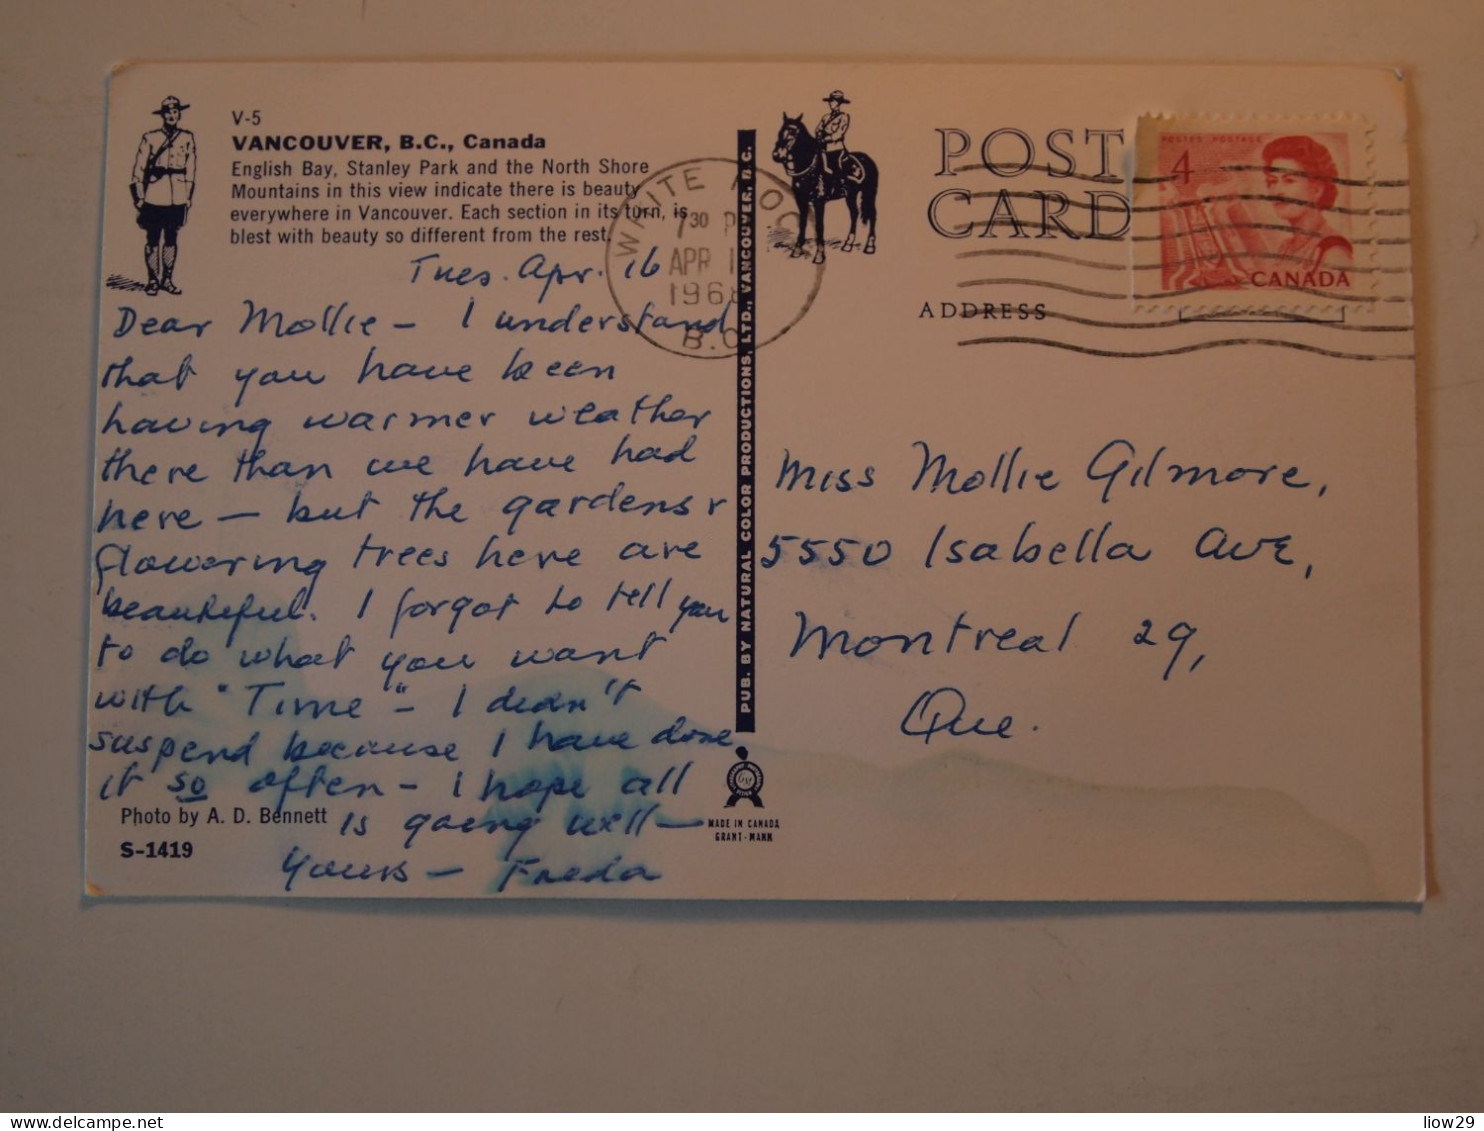 V-5
VANCOUVER, B.C., Canada
English Bay, Stanley Park and the North Shore
Mountains in this view indicate there is beauty
everywhere in Vancouver. Each section in its turn, is
blest with beauty so different from the rest.
Tues. Apr. 16
Dear Mollie – I understand
that you have been
having warmer weather
there than we have had
here – but the gardens &
flowering trees here are
beautiful. I forgot to tell you
to do what you want
with "Time" – I didn't
suspend because I have done
it so often – I hope all
is going well –
Yours – Freda
Photo by A. D. Bennett
S-1419
WHITE ROCK
7 30 P
APR 1
196
B.C.
PUB. BY NATURAL COLOR PRODUCTIONS, LTD., VANCOUVER, B.C.
MADE IN CANADA
GRANT-MANN
POST
CARD
ADDRESS
POSTES POSTAGE
4
CANADA
Miss Mollie Gilmore,
5550 Isabella Ave,
Montreal 29,
Que.
delcampe.net
liow29